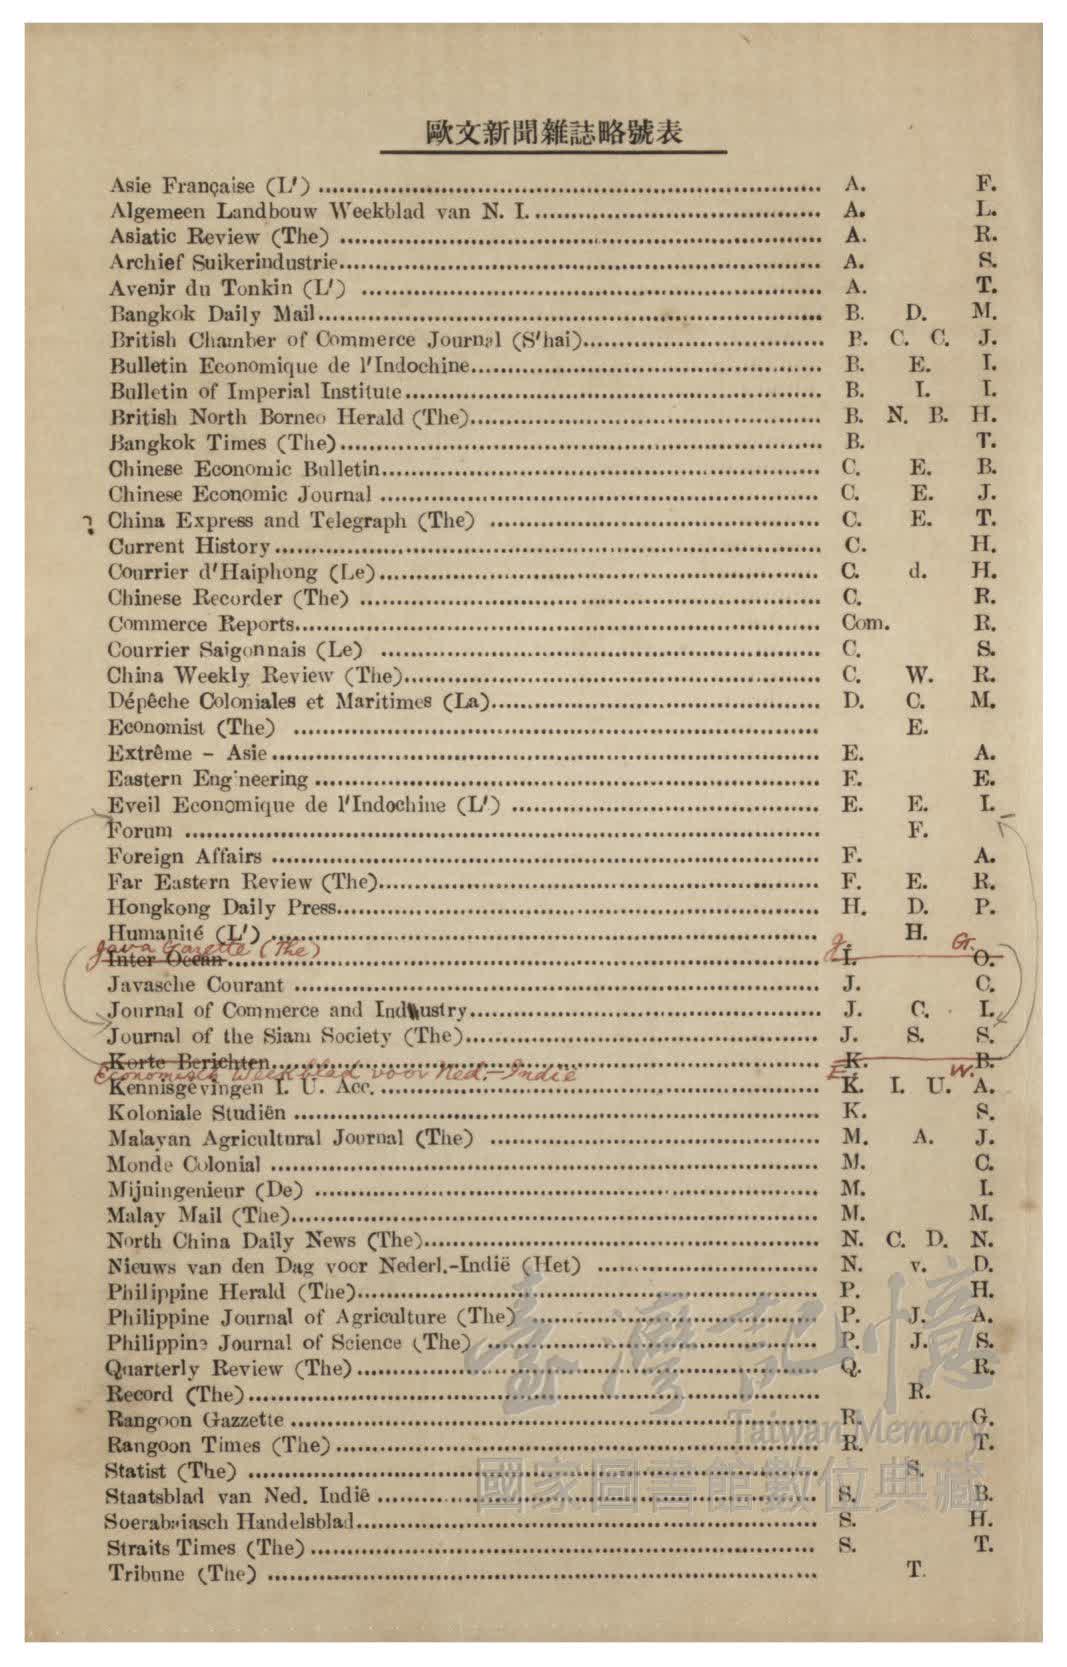 歐文新聞雜誌略號表
Asie Française (L') ........ A. F.
Algemeen Landbouw Weekblad van N. I. ........ A. L.
Asiatic Review (The) ........ A. R.
Archief Suikerindustrie ........ A. S.
Avenir du Tonkin (L') ........ A. T.
Bangkok Daily Mail ........ B. D. M.
British Chamber of Commerce Journal (S'hai) ........ B. C. C. J.
Bulletin Economique de l'Indochine ........ B. E. I.
Bulletin of Imperial Institute ........ B. I. I.
British North Borneo Herald (The) ........ B. N. B. H.
Bangkok Times (The) ........ B. T.
Chinese Economic Bulletin ........ C. E. B.
Chinese Economic Journal ........ C. E. J.
? China Express and Telegraph (The) ........ C. E. T.
Current History ........ C. H.
Courrier d'Haiphong (Le) ........ C. d. H.
Chinese Recorder (The) ........ C. R.
Commerce Reports ........ Com. R.
Courrier Saigonnais (Le) ........ C. S.
China Weekly Review (The) ........ C. W. R.
Dépêche Coloniales et Maritimes (La) ........ D. C. M.
Economist (The) ........ E.
Extrême - Asie ........ E. A.
Eastern Eng neering ........ E. E.
Eveil Economique de l'Indochine (L') ........ E. E. I.
Forum ........ F.
Foreign Affairs ........ F. A.
Far Eastern Review (The) ........ F. E. R.
Hongkong Daily Press ........ H. D. P.
Humanité (L') ........ H.
Java Gazette (The) J. G.
Inter Ocean ........ I. O.
Javasche Courant ........ J. C.
Journal of Commerce and Industry ........ J. C. I.
Journal of the Siam Society (The) ........ J. S. S.
Korte Berichten ........ K. B.
Economisch Weekblad voor Ned.-Indië E. W.
Kennisgevingen I. U. Acc. ........ K. I. U. A.
Koloniale Studiën ........ K. S.
Malayan Agricultural Journal (The) ........ M. A. J.
Monde Colonial ........ M. C.
Mijningenieur (De) ........ M. I.
Malay Mail (The) ........ M. M.
North China Daily News (The) ........ N. C. D. N.
Nieuws van den Dag voor Nederl.-Indië (Het) ........ N. v. D.
Philippine Herald (The) ........ P. H.
Philippine Journal of Agriculture (The) ........ P. J. A.
Philippine Journal of Science (The) ........ P. J. S.
Quarterly Review (The) ........ Q. R.
Record (The) ........ R.
Rangoon Gazzette ........ R. G.
Rangoon Times (The) ........ R. T.
Statist (The) ........ S.
Staatsblad van Ned. Indië ........ S. B.
Soerabaiasch Handelsblad ........ S. H.
Straits Times (The) ........ S. T.
Tribune (The) ........ T.
臺灣記憶
Taiwan Memory
國家圖書館數位典藏